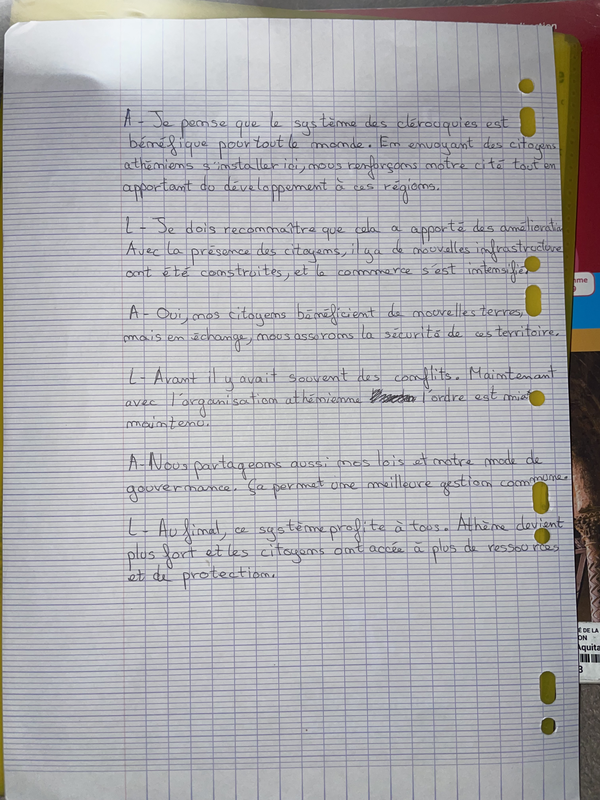 A - Je pense que le système des clérouquies est
bénéfique pour tout le monde. En envoyant des citoyens
athéniens s'installer ici, nous renforçons notre cité tout en
apportant du développement à ces régions.
L - Je dois reconnaître que cela a apporté des amélioratio
Avec la présence des citoyens, il y a de nouvelles infrastructure
ont été construites, et le commerce s'est intensifié
A - Oui, nos citoyens bénéficient de nouvelles terres,
mais en échange, nous assurons la sécurité de ces territoire.
L - Avant il y avait souvent des conflits. Maintenant
avec l'organisation athénienne l'ordre est mieu
maintenu.
A - Nous partageons aussi nos lois et notre mode de
gouvernance. Ça permet une meilleure gestion commune.
L - Au final, ce système profite à tous. Athène devient
plus fort et les citoyens ont accée à plus de ressources
et de protection.
E DE LA
ON
Aquita